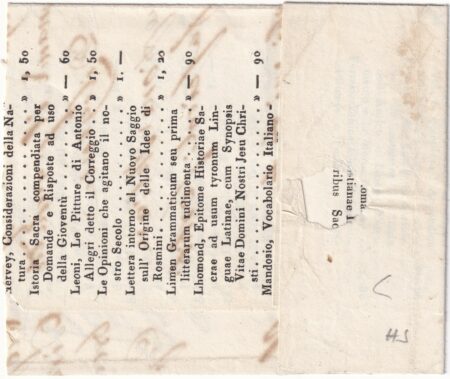 Hervey, Considerazioni della Na-
tura . . . . . . . . . . . . » 1, 50
Istoria Sacra compendiata per
Domande e Risposte ad uso
della Gioventù . . . . . . » — 60
Leoni, Le Pitture di Antonio
Allegri detto il Correggio . » 1, 50
Le Opinioni che agitano il no-
stro Secolo . . . . . . . . » 1. —
Lettera intorno al Nuovo Saggio
sull' Origine delle Idee di
Rosmini . . . . . . . . . . » 1, 20
Limen Grammaticum seu prima
litterarum rudimenta . . . » — 90
Lhomond, Epitome Historiae Sa-
crae ad usum tyronum Lin-
guae Latinae, cum Synopsis
Vitae Domini Nostri Jesu Chri-
sti . . . . . . . . . . . . » — 90
Mandosio, Vocabolario Italiano-
oma
etianae
ribus Sac
HS